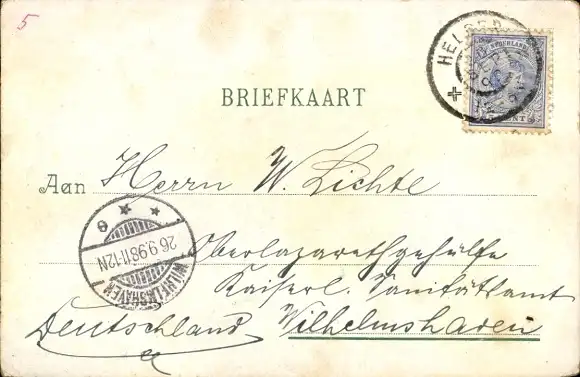 5
HELDER
SEP
98
NEDERLAND
CENT
BRIEFKAART
Aan Herrn W. Lichte
26.9.98 11-12N
WILHELMSHAVEN
Oberlazarethgehülfe
Kaiserl. Sanitätsamt
Deutschland Wilhelmshaven